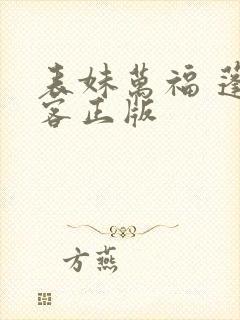 表妹萬福 蓬
客正版
方燕